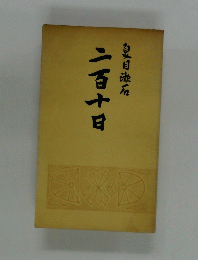 夏目漱石
二百十日